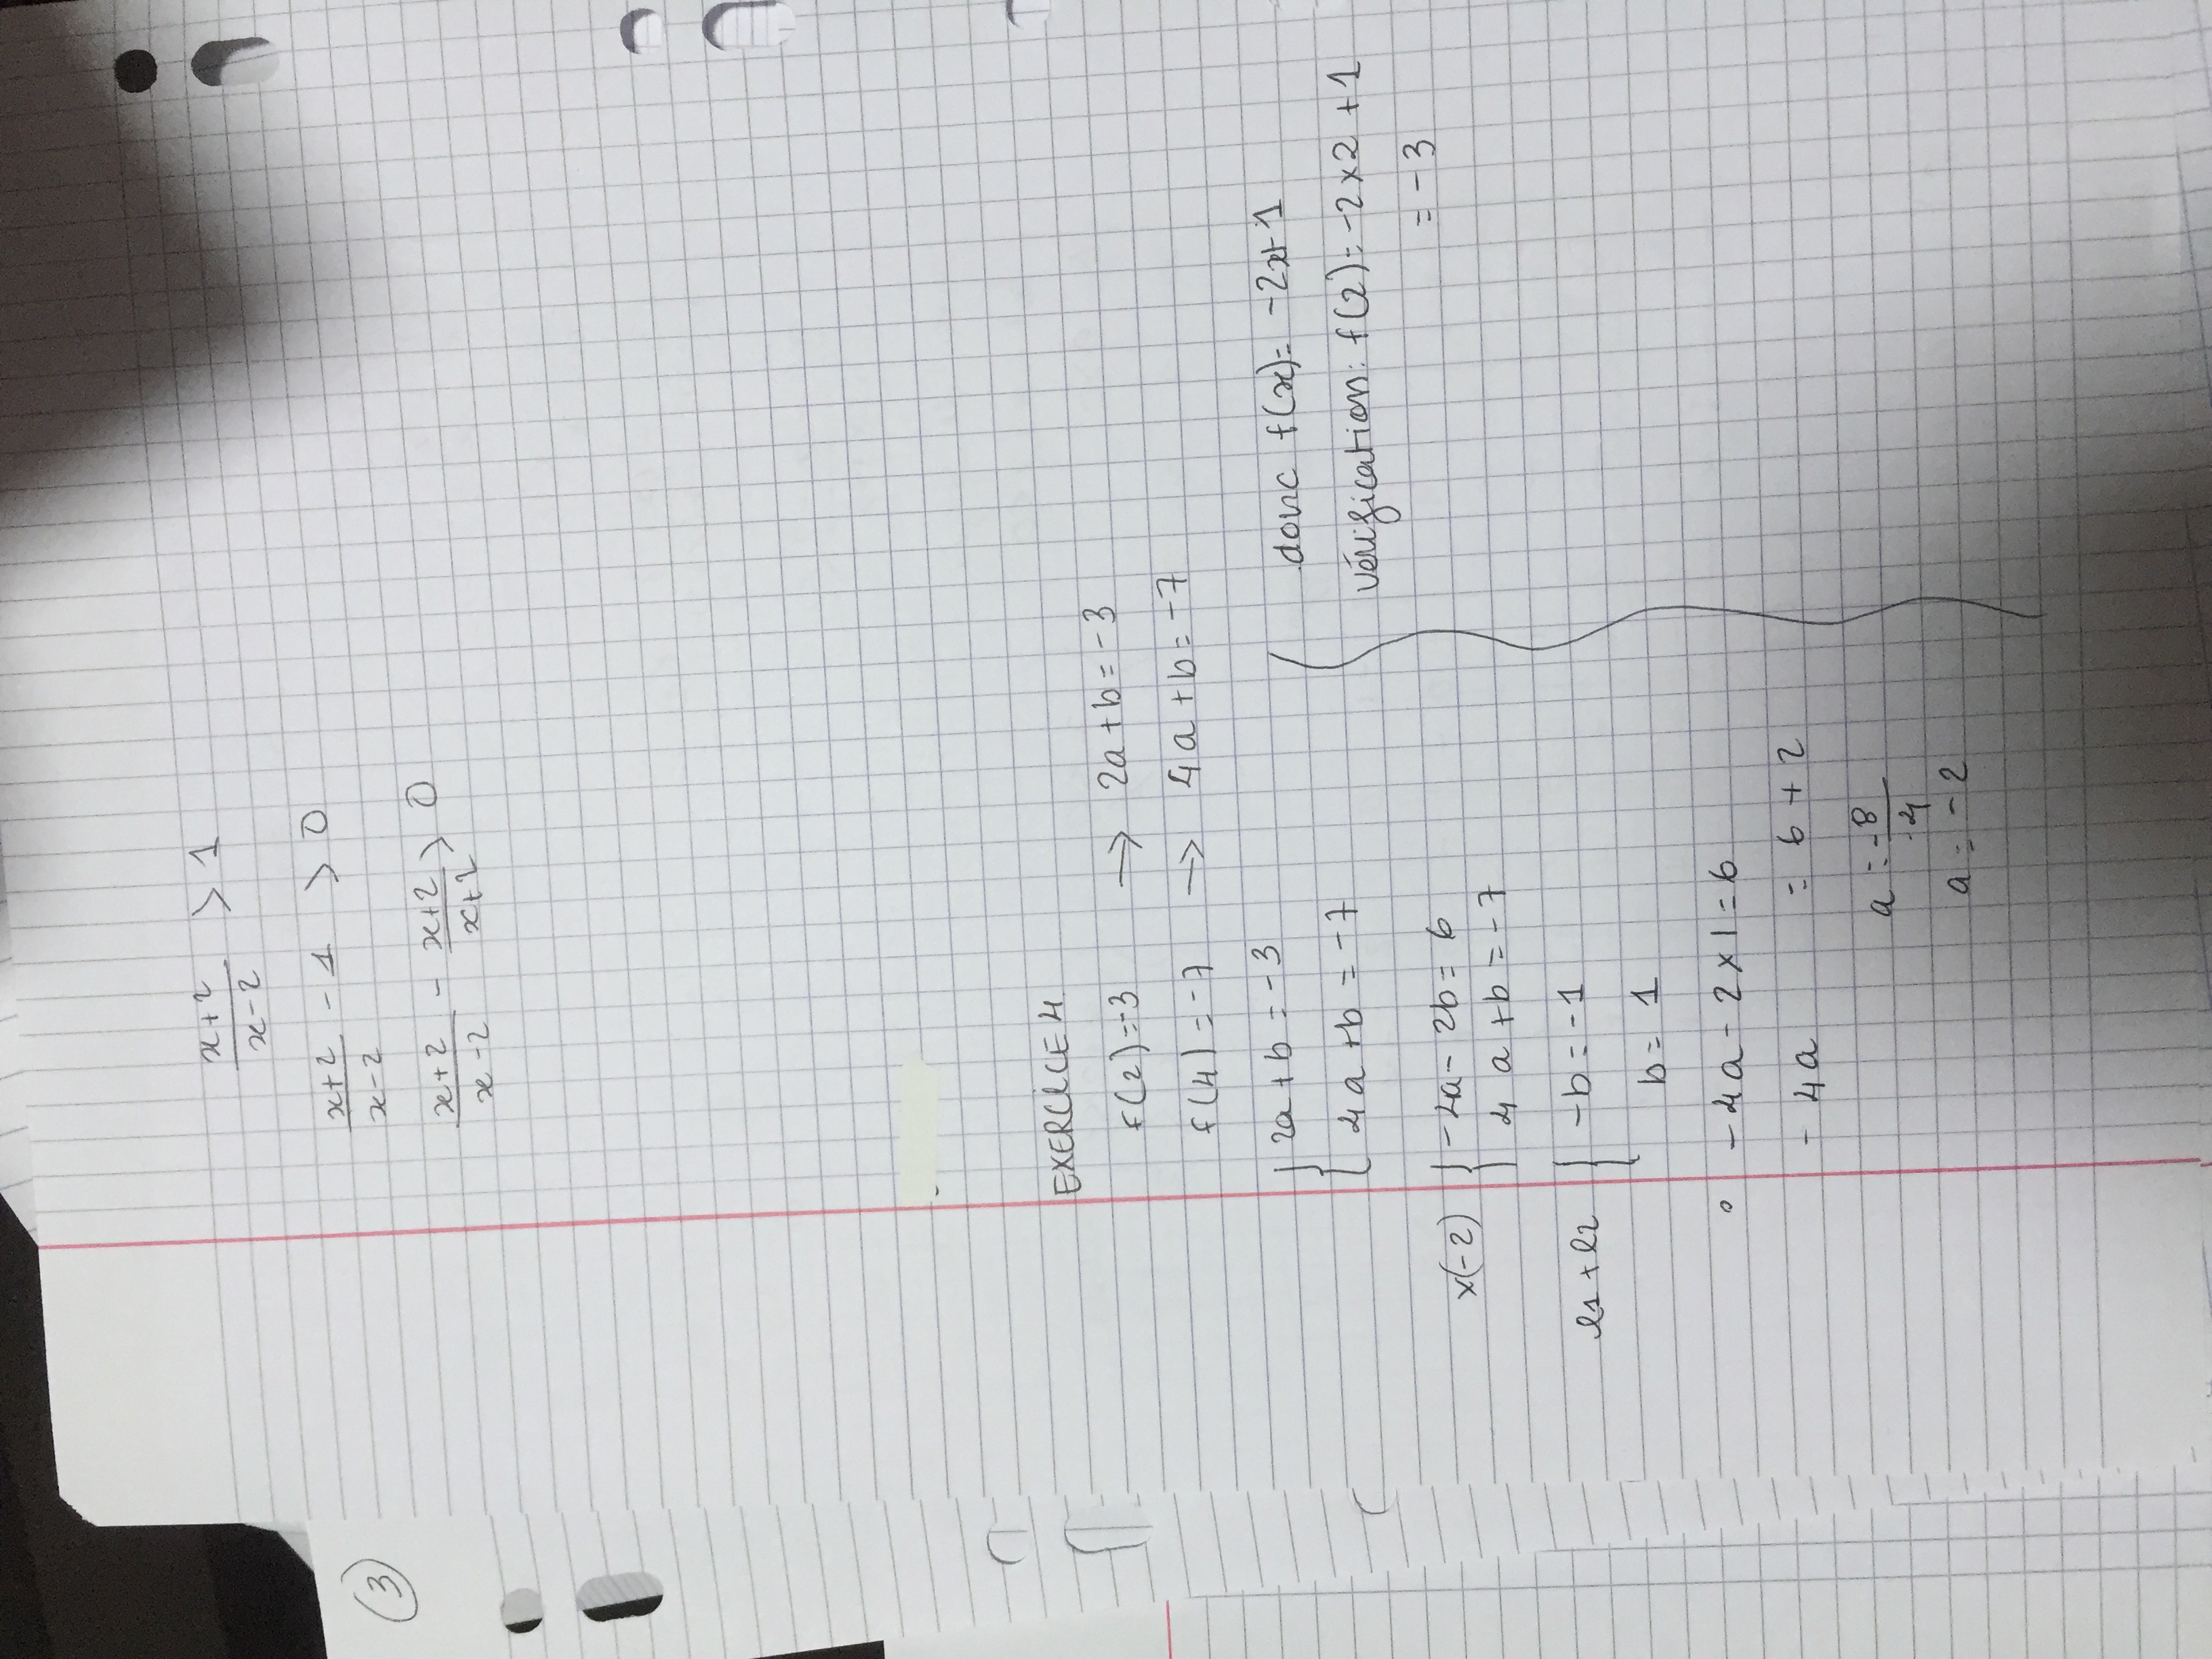 3
x+2/x-2 > 1
x+2/x-2 - 1 > 0
x+2/x-2 - x+2/x+2 > 0
EXERCICE 4
f(2)=-3 → 2a+b=-3
f(4)=-7 → 4a+b=-7
{ 2a+b=-3
4a+b=-7
x(-2) { -4a-2b=6
4a+b=-7
l1+l2 { -b=-1
b=1
° -4a-2x1=6
-4a = 6+2
a=-8/4
a=-2
donc f(x)=-2x+1
vérification: f(2)=-2x2+1
=-3